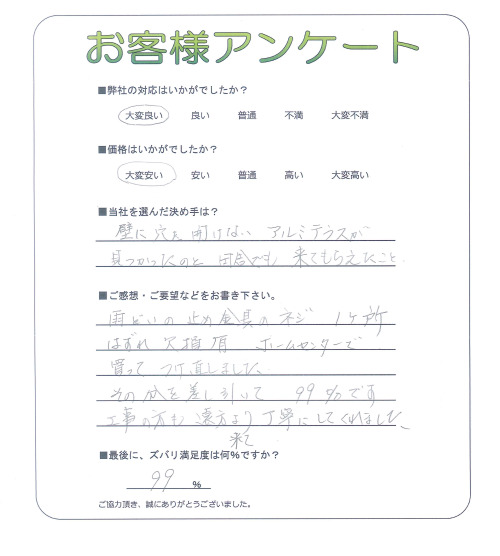 お客様アンケート
■弊社の対応はいかがでしたか？
大変良い 良い 普通 不満 大変不満
■価格はいかがでしたか？
大変安い 安い 普通 高い 大変高い
■当社を選んだ決め手は？
壁に穴を開けない アルミテラスが
見つかったのと 田舎でも 来てもらえたこと.
■ご感想・ご要望などをお書き下さい。
雨どいの止め金具のネジ 1ヶ所
はずれ 欠損 ホームセンターで
買って つけ直しました。
その分を差し引いて 99%です
工事の方も 遠方より 丁寧にしてくれました。
来て
■最後に、ズバリ満足度は何%ですか？
99 %
ご協力頂き、誠にありがとうございました。